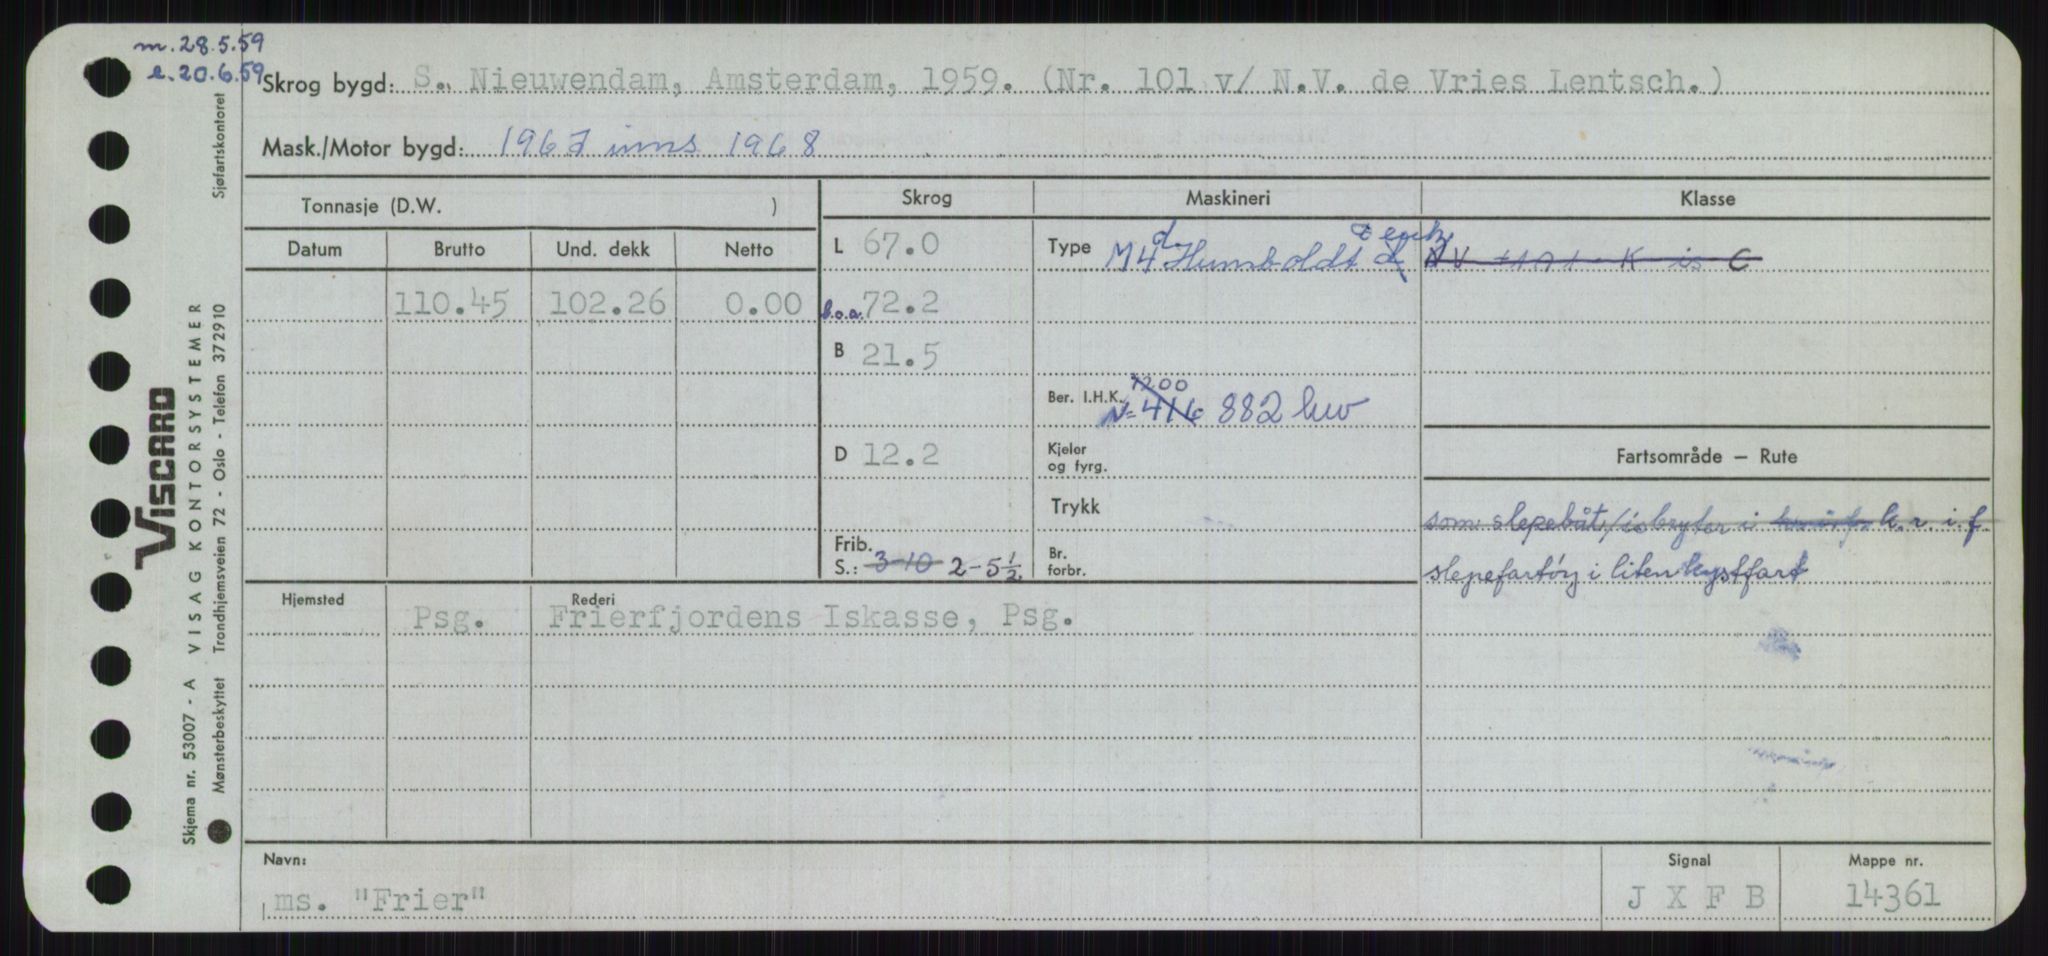 m. 28.5.59
e. 20.6.59
Skrog bygd: S. Nieuwendam, Amsterdam, 1959. (Nr. 101 v/ N.V. de Vries Lentsch.)
Mask./Motor bygd: 1967 inns 1968
Tonnasje (D.W. )
Skrog
Maskineri
Klasse
Datum Brutto Und. dekk Netto
110.45 102.26 0.00
L 67.0
b.o.a. 72.2
B 21.5
D 12.2
Frib.
S.: 3-10 2-5½
Type M4 d. Humboldt Deutz
Ber. I.H.K. 1200
N= 416 882 hw
Kjeler
og fyrg.
Trykk
Br.
forbr.
Fartsområde — Rute
som slepebåt/isbryter i k.r.i.f.
slepefartöy i liten kystfart
Hjemsted Rederi
Psg. Frierfjordens Iskasse, Psg.
Navn: Signal Mappe nr.
ms. "Frier" J X F B 14361
Sjøfartskontoret
VISCARD
VISAG KONTORSYSTEMER
Trondhjemsveien 72 - Oslo - Telefon 372910
Skjema nr. 53007 - A
Mønsterbeskyttet